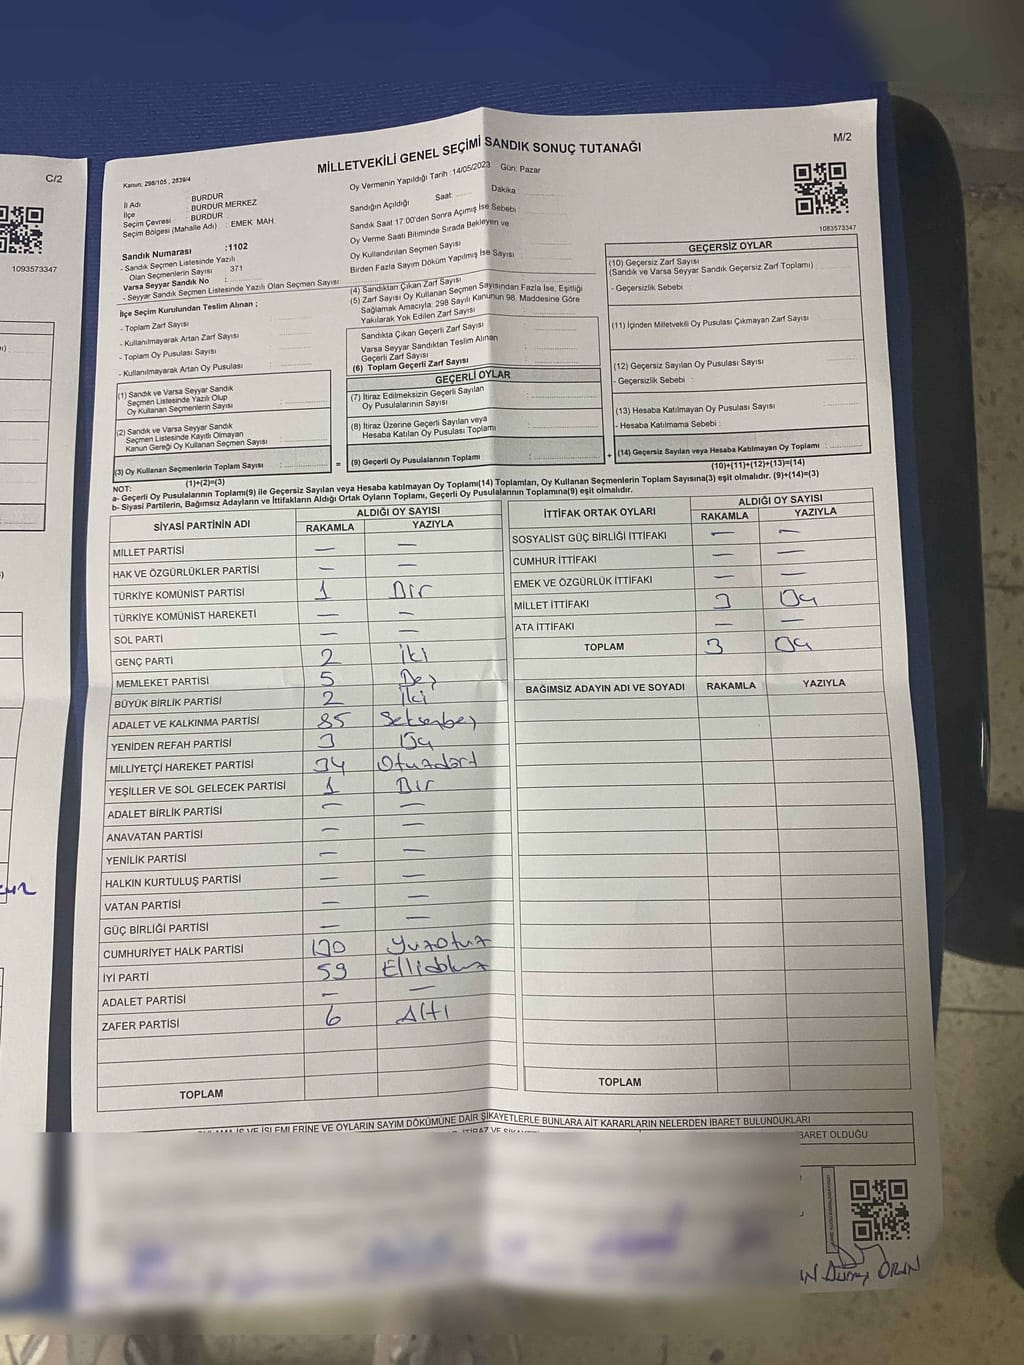 C/2
1093573347
M/2
MİLLETVEKİLİ GENEL SEÇİMİ SANDIK SONUÇ TUTANAĞI
Kanun; 298/105 , 2839/4
Oy Vermenin Yapıldığı Tarih :14/05/2023 Gün: Pazar
İl Adı : BURDUR
İlçe : BURDUR MERKEZ
Seçim Çevresi : BURDUR
Seçim Bölgesi (Mahalle Adı) : EMEK MAH.
Sandık Numarası :1102
- Sandık Seçmen Listesinde Yazılı
Olan Seçmenlerin Sayısı : 371
Varsa Seyyar Sandık No :
- Seyyar Sandık Seçmen Listesinde Yazılı Olan Seçmen Sayısı:
Sandığın Açıldığı Saat: Dakika :
Sandık Saat 17.00'den Sonra Açımış İse Sebebi :
Oy Verme Saati Bitiminde Sırada Bekleyen ve
Oy Kullandırılan Seçmen Sayısı
Birden Fazla Sayım Döküm Yapılmış İse Sayısı
1083573347
İlçe Seçim Kurulundan Teslim Alınan ;
- Toplam Zarf Sayısı
- Kullanılmayarak Artan Zarf Sayısı
- Toplam Oy Pusulası Sayısı
- Kullanılmayarak Artan Oy Pusulası
(1) Sandık ve Varsa Seyyar Sandık
Seçmen Listesinde Yazılı Olup
Oy Kullanan Seçmenlerin Sayısı
(2) Sandık ve Varsa Seyyar Sandık
Seçmen Listesinde Kayıtlı Olmayan
Kanun Gereği Oy Kullanan Seçmen Sayısı :
(3) Oy Kullanan Seçmenlerin Toplam Sayısı :
(1)+(2)=(3)
(4) Sandıktan Çıkan Zarf Sayısı
(5) Zarf Sayısı Oy Kullanan Seçmen Sayısından Fazla İse, Eşitliği
Sağlamak Amacıyla; 298 Sayılı Kanunun 98. Maddesine Göre
Yakılarak Yok Edilen Zarf Sayısı
Sandıkta Çıkan Geçerli Zarf Sayısı
Varsa Seyyar Sandıktan Teslim Alınan
Geçerli Zarf Sayısı
(6) Toplam Geçerli Zarf Sayısı
GEÇERLİ OYLAR
(7) İtiraz Edilmeksizin Geçerli Sayılan
Oy Pusulalarının Sayısı
(8) İtiraz Üzerine Geçerli Sayılan veya
Hesaba Katılan Oy Pusulası Toplamı
= (9) Geçerli Oy Pusulalarının Toplamı
GEÇERSİZ OYLAR
(10) Geçersiz Zarf Sayısı
(Sandık ve Varsa Seyyar Sandık Geçersiz Zarf Toplamı) :
- Geçersizlik Sebebi :
(11) İçinden Milletvekili Oy Pusulası Çıkmayan Zarf Sayısı
(12) Geçersiz Sayılan Oy Pusulası Sayısı
- Geçersizlik Sebebi :
(13) Hesaba Katılmayan Oy Pusulası Sayısı
- Hesaba Katılmama Sebebi :
+ (14) Geçersiz Sayılan veya Hesaba Katılmayan Oy Toplamı :
(10)+(11)+(12)+(13)=(14)
NOT:
a- Geçerli Oy Pusulalarının Toplamı(9) ile Geçersiz Sayılan veya Hesaba Katılmayan Oy Toplamı(14) Toplamları, Oy Kullanan Seçmenlerin Toplam Sayısına(3) eşit olmalıdır. (9)+(14)=(3)
b- Siyasi Partilerin, Bağımsız Adayların ve İttifakların Aldığı Ortak Oyların Toplamı, Geçerli Oy Pusulalarının Toplamına(9) eşit olmalıdır.
SİYASİ PARTİNİN ADI ALDIĞI OY SAYISI
RAKAMLA YAZIYLA
MİLLET PARTİSİ — —
HAK VE ÖZGÜRLÜKLER PARTİSİ — —
TÜRKİYE KOMÜNİST PARTİSİ 1 Bir
TÜRKİYE KOMÜNİST HAREKETİ — —
SOL PARTİ — —
GENÇ PARTİ 2 İki
MEMLEKET PARTİSİ 5 Beş
BÜYÜK BİRLİK PARTİSİ 2 İki
ADALET VE KALKINMA PARTİSİ 85 Seksenbeş
YENİDEN REFAH PARTİSİ 3 Üç
MİLLİYETÇİ HAREKET PARTİSİ 34 Otuzdört
YEŞİLLER VE SOL GELECEK PARTİSİ 1 Bir
ADALET BİRLİK PARTİSİ — —
ANAVATAN PARTİSİ — —
YENİLİK PARTİSİ — —
HALKIN KURTULUŞ PARTİSİ — —
VATAN PARTİSİ — —
GÜÇ BİRLİĞİ PARTİSİ — —
CUMHURİYET HALK PARTİSİ 130 Yüzotuz
İYİ PARTİ 59 Ellidokuz
ADALET PARTİSİ — —
ZAFER PARTİSİ 6 Altı
TOPLAM
İTTİFAK ORTAK OYLARI ALDIĞI OY SAYISI
RAKAMLA YAZIYLA
SOSYALİST GÜÇ BİRLİĞİ İTTİFAKI — —
CUMHUR İTTİFAKI — —
EMEK VE ÖZGÜRLÜK İTTİFAKI — —
MİLLET İTTİFAKI 3 Üç
ATA İTTİFAKI — —
TOPLAM 3 Üç
BAĞIMSIZ ADAYIN ADI VE SOYADI RAKAMLA YAZIYLA
TOPLAM
İŞLEMLERİNE VE OYLARIN SAYIM DÖKÜMÜNE DAİR ŞİKAYETLERLE BUNLARA AİT KARARLARIN NELERDEN İBARET BULUNDUKLARI
BARET OLDUĞU
ORAN